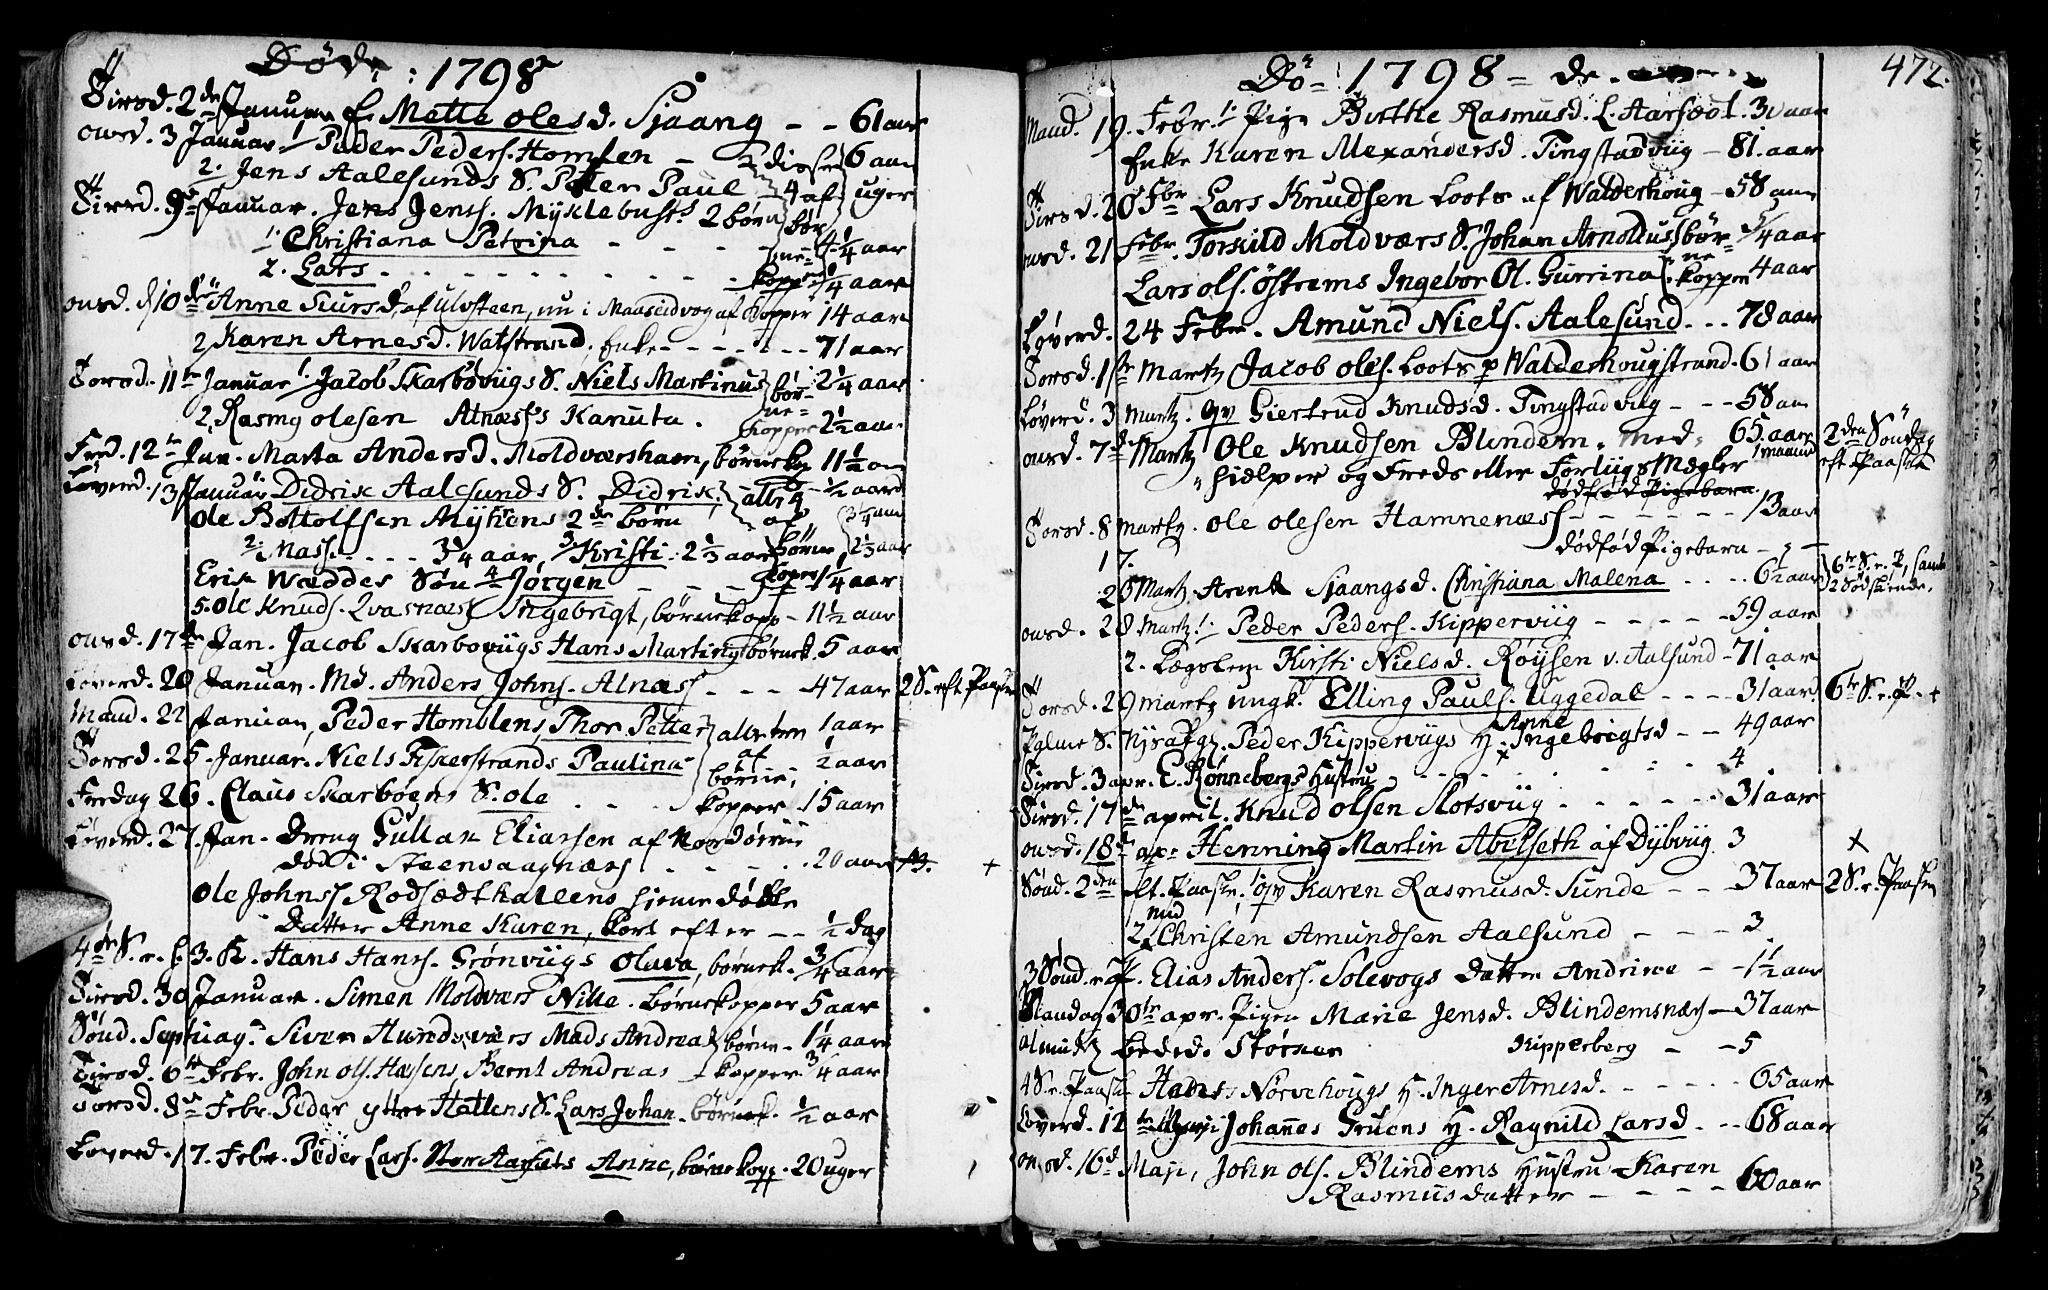 Døde 1798
Tirsd. 2den Januar Mette Olesd. Sjaang - - 61 aar
onsd. 3 Januar Peder Peders. Homlen - 6 aar
2. Jens Aalesunds S. Peter Paul 4 uger
Tirsd. 9de Januar. Jens Jens. Myklebusts 2 børn
disse 4 af børnekopper
1. Christiana Petrina - - - 4 1/4 aar
2. Lars - - - 1/4 aar
onsd. d 10de Anne Siursd. af Ulvsteen, nu i Maaseidvog af Kopper 14 aar
2, Karen Arnesd. Watstrand, Enke - - - 71 aar
Torsd. 11te Januar 1. Jacob Skarbøviigs S. Niels Martinus 2 1/4 aar
børnekopper
2, Rasmg olesen Alnæss's Kanuta. 2 1/2 aar
Fred. 12te Jan. Marta Andersd. Moldværshavn, børnekop 11 1/2 aar
Løverd. 13 Januar Didrik Aalesunds S. Didrik, 1/2 aar
Ole Bottolfsen Myhrens 2de børn 3 1/4 aar
alle af børnekopper
2. Mass - - - 3/4 aar, 3 Kristi - 2 1/3 aar 2 1/3 aar
Erik Wæddes Søn 4 Jørgen - - - 1 1/4 aar
5. Ole Knuds. Qvasnæs Ingebrigt, børnekopp - 11 1/2 aar
onsd. 17de Jan. Jacob Skarbøviigs Hans Martinus børnek. 5 aar
Løverd. 20 Januar. Md. Anders Johns. Alnæss - - - 47 aar 2 S. eft. Paaske
Mand. 22 Januar, Peder Homblens, Thor Pette 1 aar
Torsd. 25. Januar. Niels Fiskerstrands Paulina 1/2 aar
alle tre af børnekopper
Fredag 26. Claus Skarbøens S. Ole - - - 15 aar
Løverd. 27. Jan. Dreng Gullak Eliassen af
død i Steenvaagnæs - - - 20 aar +
Ole Johns. Rødsædthallens hiemedøbte
Datter Anne Karen, kort efter - - 1/2 dag
4de S. e. h. 3. K. Hans Hans. Grønviigs Olava, børnek. 3/4 aar
Tirsd. 30 Januar. Simen Moldværs Nille. børnekopper 5 aar
Sønd. Septuag. Siver Hundsværs Mads Andrea 1 1/4 aar
børnekopper
Tirsd. 6te Febr. John ols. Hæssens, Bernt Andreas 3/4 aar
Torsd. 8de Febr. Peder ytre Hallens S. Lars Johan. børnek. 1/2 aar
Løverd. 17. Febr. Peder Lars. Aarsæts Anne, børnekopp. 20 uger
Dø- 1798 - de. 472.
Mand. 19. Febr. 1. Pige Birthe Rasmusd. L. Aarsæt. 30 aar
Enke Karen Alexandersd. Tingstadviig - 81. aar
Tirsd. 20 Febr Lars Knudsen Loots af Walderhoug - 58 aar
onsd. 21 Febr. Torskild Moldværs S. Johan Arnoldus 5/4 aar
børnekopper
Lars ols. Østrems Ingebor Ol. Gurrina 4 aar
Løverd. 24 Febr. Amund Niels. Aalesund - - - 78 aar
Torsd. 1ste Martz Jacob oles. Loots p Walderhougstrand. 61 aar
Løverd. 3 Martz. qv Giertrud Knudsd. Tingstadviig - - - 58 aar
onsd. 7de Martz Ole Knudsen Blindem, Med- 65. aar 2den Søndag
hielper og Freds eller Forligs Mægler 1 maaned eft. Paaske
dødfød Pigebarn
Torsd. 8 Martz. Ole Olesen Hamnenæss - - - 13 aar
17. dødfød Pigebarn - - -
26 Martz Arent Sjaangsd. Christiana Malena - - - 6 1/2 aar 6te S. e. P, samt 2 Dødfødde.
onsd. 28 Martz. 1. Peder Peders. Kipperviig - - - 59 aar
2. Lægdslem Kirsti Nielsd. Røysen v. Aalsund - 71 aar
Torsd. 29 Martz ungk. Elling Pauls. Uggedal - - - 31 aar. 6te S. e. P. +
Palme S. Peder Kipperviigs H. Anne Ingebrigtsd - - 49 aar
Tirsd. 3 apr. E. Rønnebergs Hustru - - - 4
Tirsd. 17de april. Knud Olsen Slotsviig - - - 31 aar
onsd. 18de apr Henning Martin Abelseth af Dybviig 3 +
Sønd. 2den eft. Paaske. 1. qv Karen Rasmusd. Sunde - - 37 aar 2 S. e. Paaske
2. Christen Amundsen Aalsund - - - 3
3 Sønd. eft. P. Elias Anders. Solevogs Datter Andrine - - 1 1/2 aar
Mandag 30te apr. Pigen Marie Jensd. Blindemsnæs - 37 aar
Kipperberg - - 5
4 S. e. Paaske Hans Nørvehougs H. Inger Arnesd. - - - 65 aar
Løverd. 12te Maji Johannes Gruens H. Ragnild Larsd - - 68 aar
onsd. 16de Maji, John Ols. Blindems Hustru Karen
Rasmusdatter - - - 60 aar